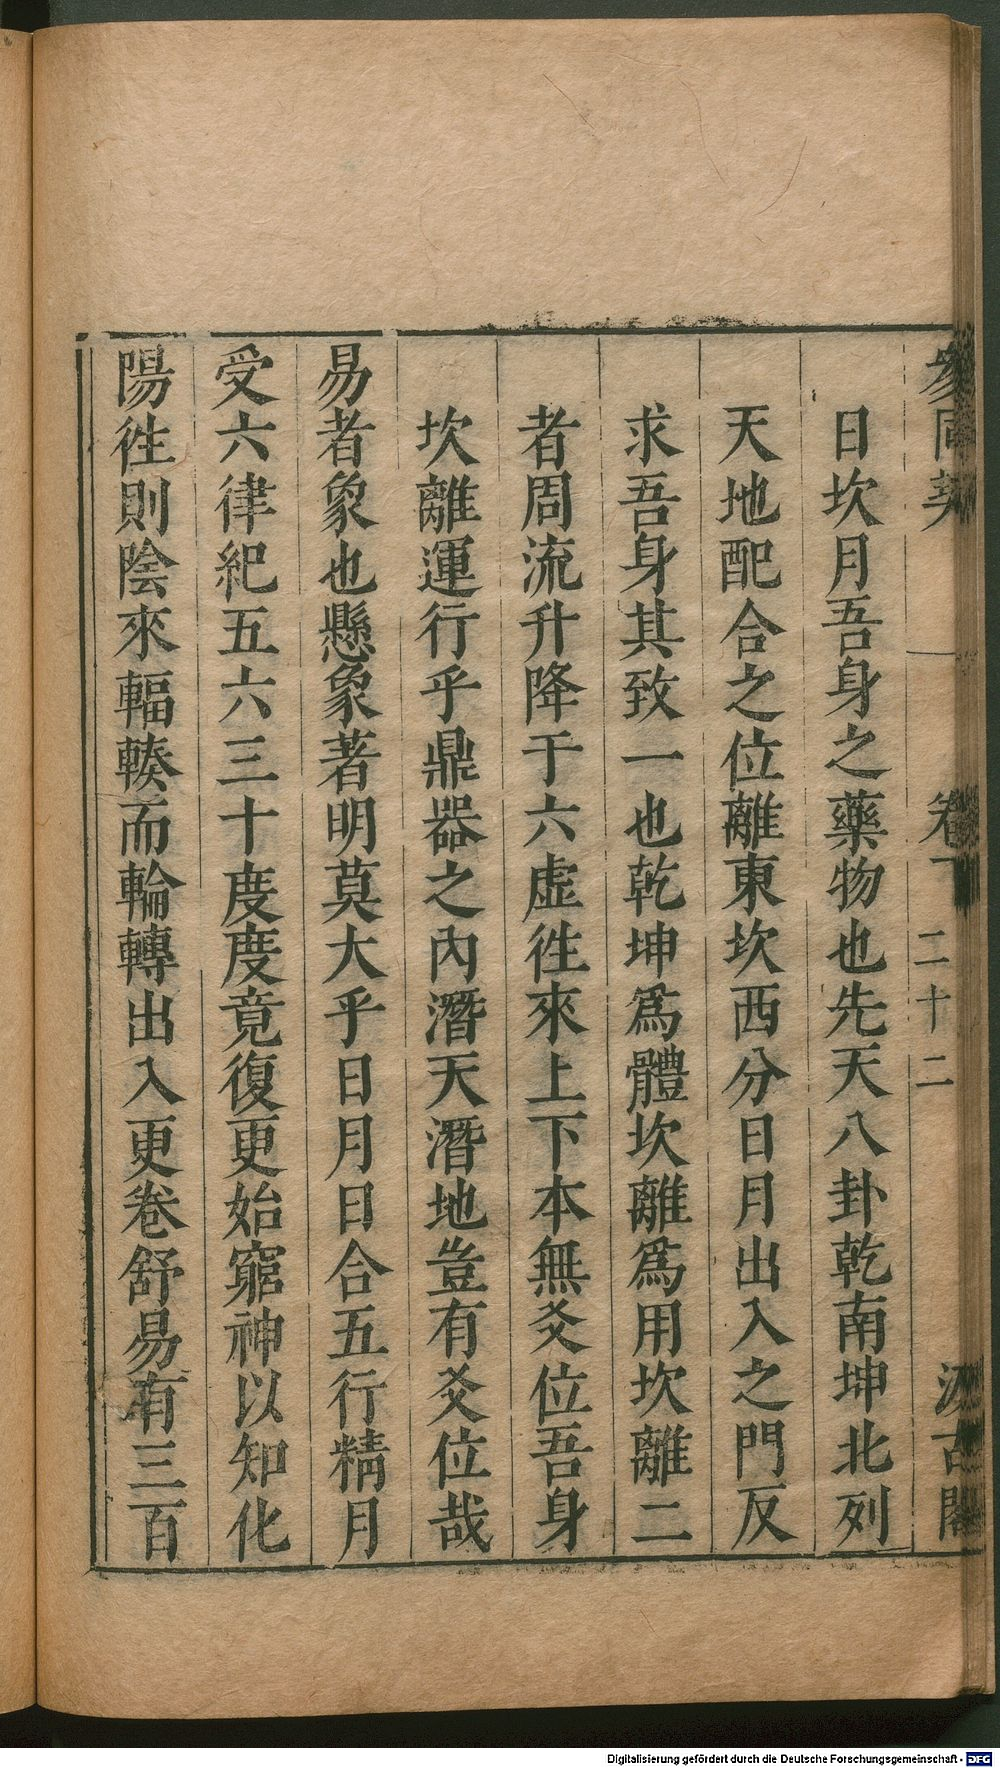 參同契 卷下 二十二 汲古閣
日坎月吾身之藥物也先天八卦乾南坤北列
天地配合之位離東坎西分日月出入之門反
求吾身其致一也乾坤爲體坎離爲用坎離二
者周流升降于六虛徃來上下本無爻位吾身
坎離運行乎鼎器之內潛天潛地豈有爻位哉
易者象也懸象著明莫大乎日月日合五行精月
受六律紀五六三十度度竟復更始窮神以知化
陽徃則陰來輻輳而輪轉出入更卷舒易有三百
Digitalisierung gefördert durch die Deutsche Forschungsgemeinschaft - DFG